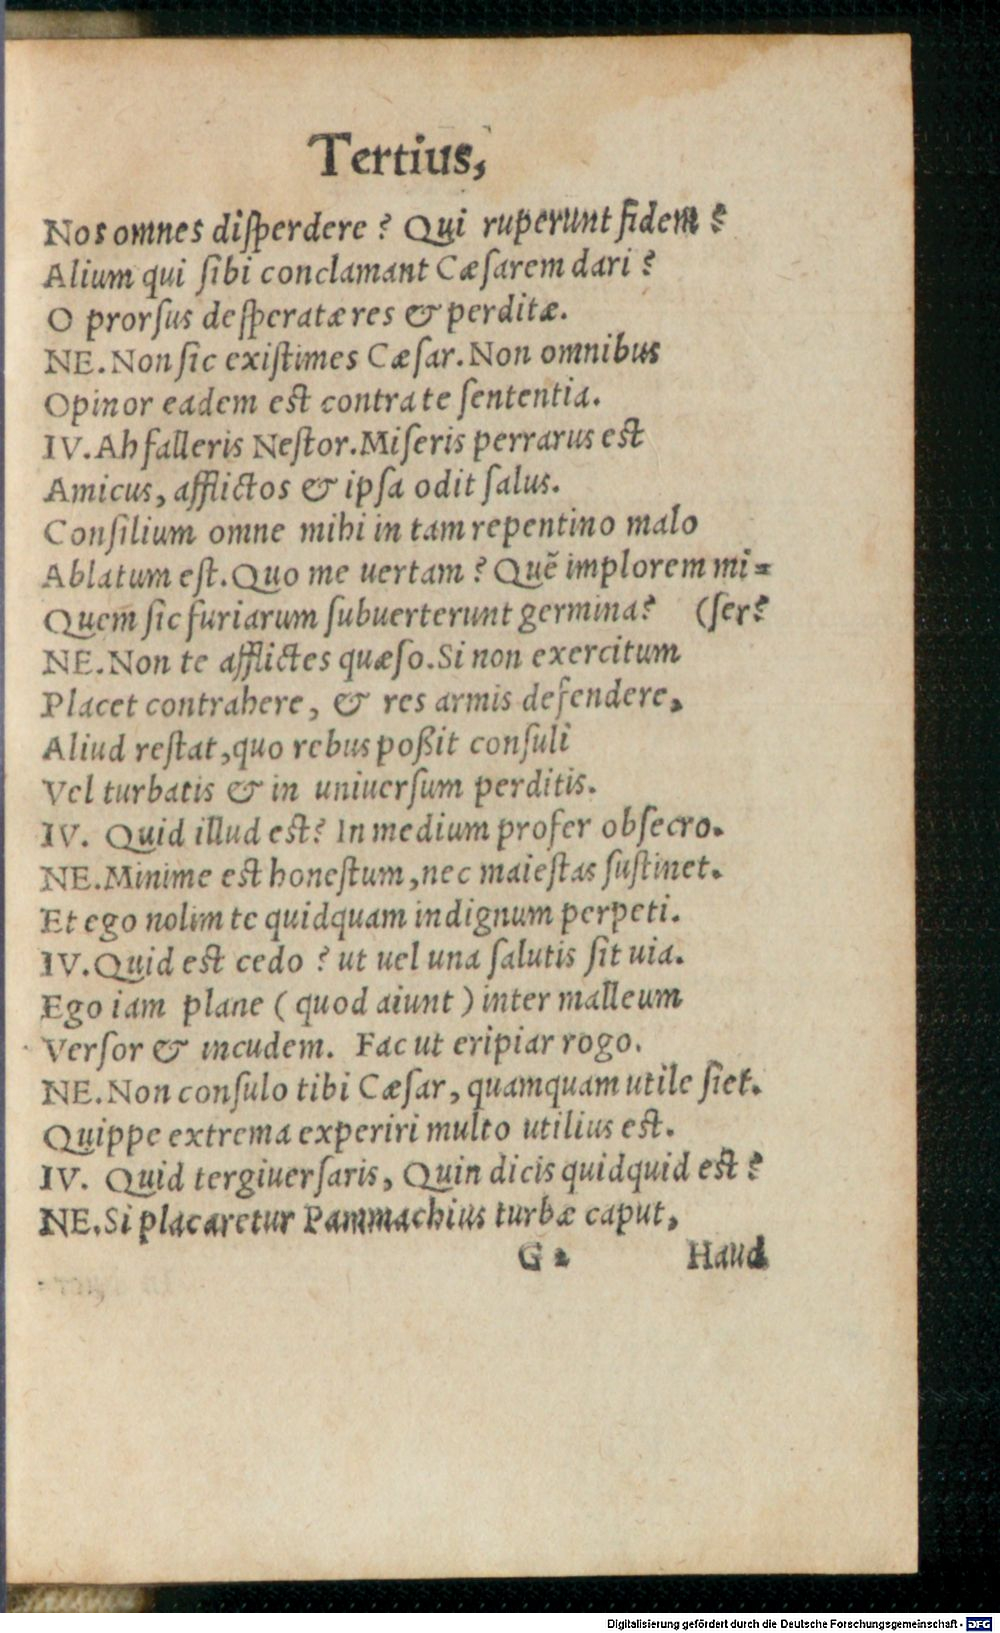 Tertius,
Nos omnes diſperdere? Qui ruperunt fidem?
Alium qui ſibi conclamant Cæſarem dari?
O prorſus deſperatæ res & perditæ.
NE. Non ſic exiſtimes Cæſar. Non omnibus
Opinor eadem eſt contra te ſententia.
IV. Ah falleris Neſtor. Miſeris perrarus eſt
Amicus, afflictos & ipſa odit ſalus.
Conſilium omne mihi in tam repentino malo
Ablatum eſt. Quo me uertam? Quẽ implorem mi=
Quem ſic furiarum ſubuerterunt germina? (ſer?
NE. Non te afflictes quæſo. Si non exercitum
Placet contrahere, & res armis defendere,
Aliud reſtat, quo rebus poßit conſuli
Vel turbatis & in uniuerſum perditis.
IV. Quid illud eſt? In medium profer obſecro.
NE. Minime eſt honeſtum, nec maieſtas ſuſtinet.
Et ego nolim te quidquam indignum perpeti.
IV. Quid eſt cedo? ut uel una ſalutis ſit uia.
Ego iam plane (quod aiunt) inter malleum
Verſor & incudem. Fac ut eripiar rogo.
NE. Non conſulo tibi Cæſar, quamquam utile ſiet.
Quippe extrema experiri multo utilius eſt.
IV. Quid tergiuerſaris, Quin dicis quidquid eſt?
NE. Si placaretur Pammachius turbæ caput,
G 2 Haud
Digitalisierung gefördert durch die Deutsche Forschungsgemeinschaft - DFG